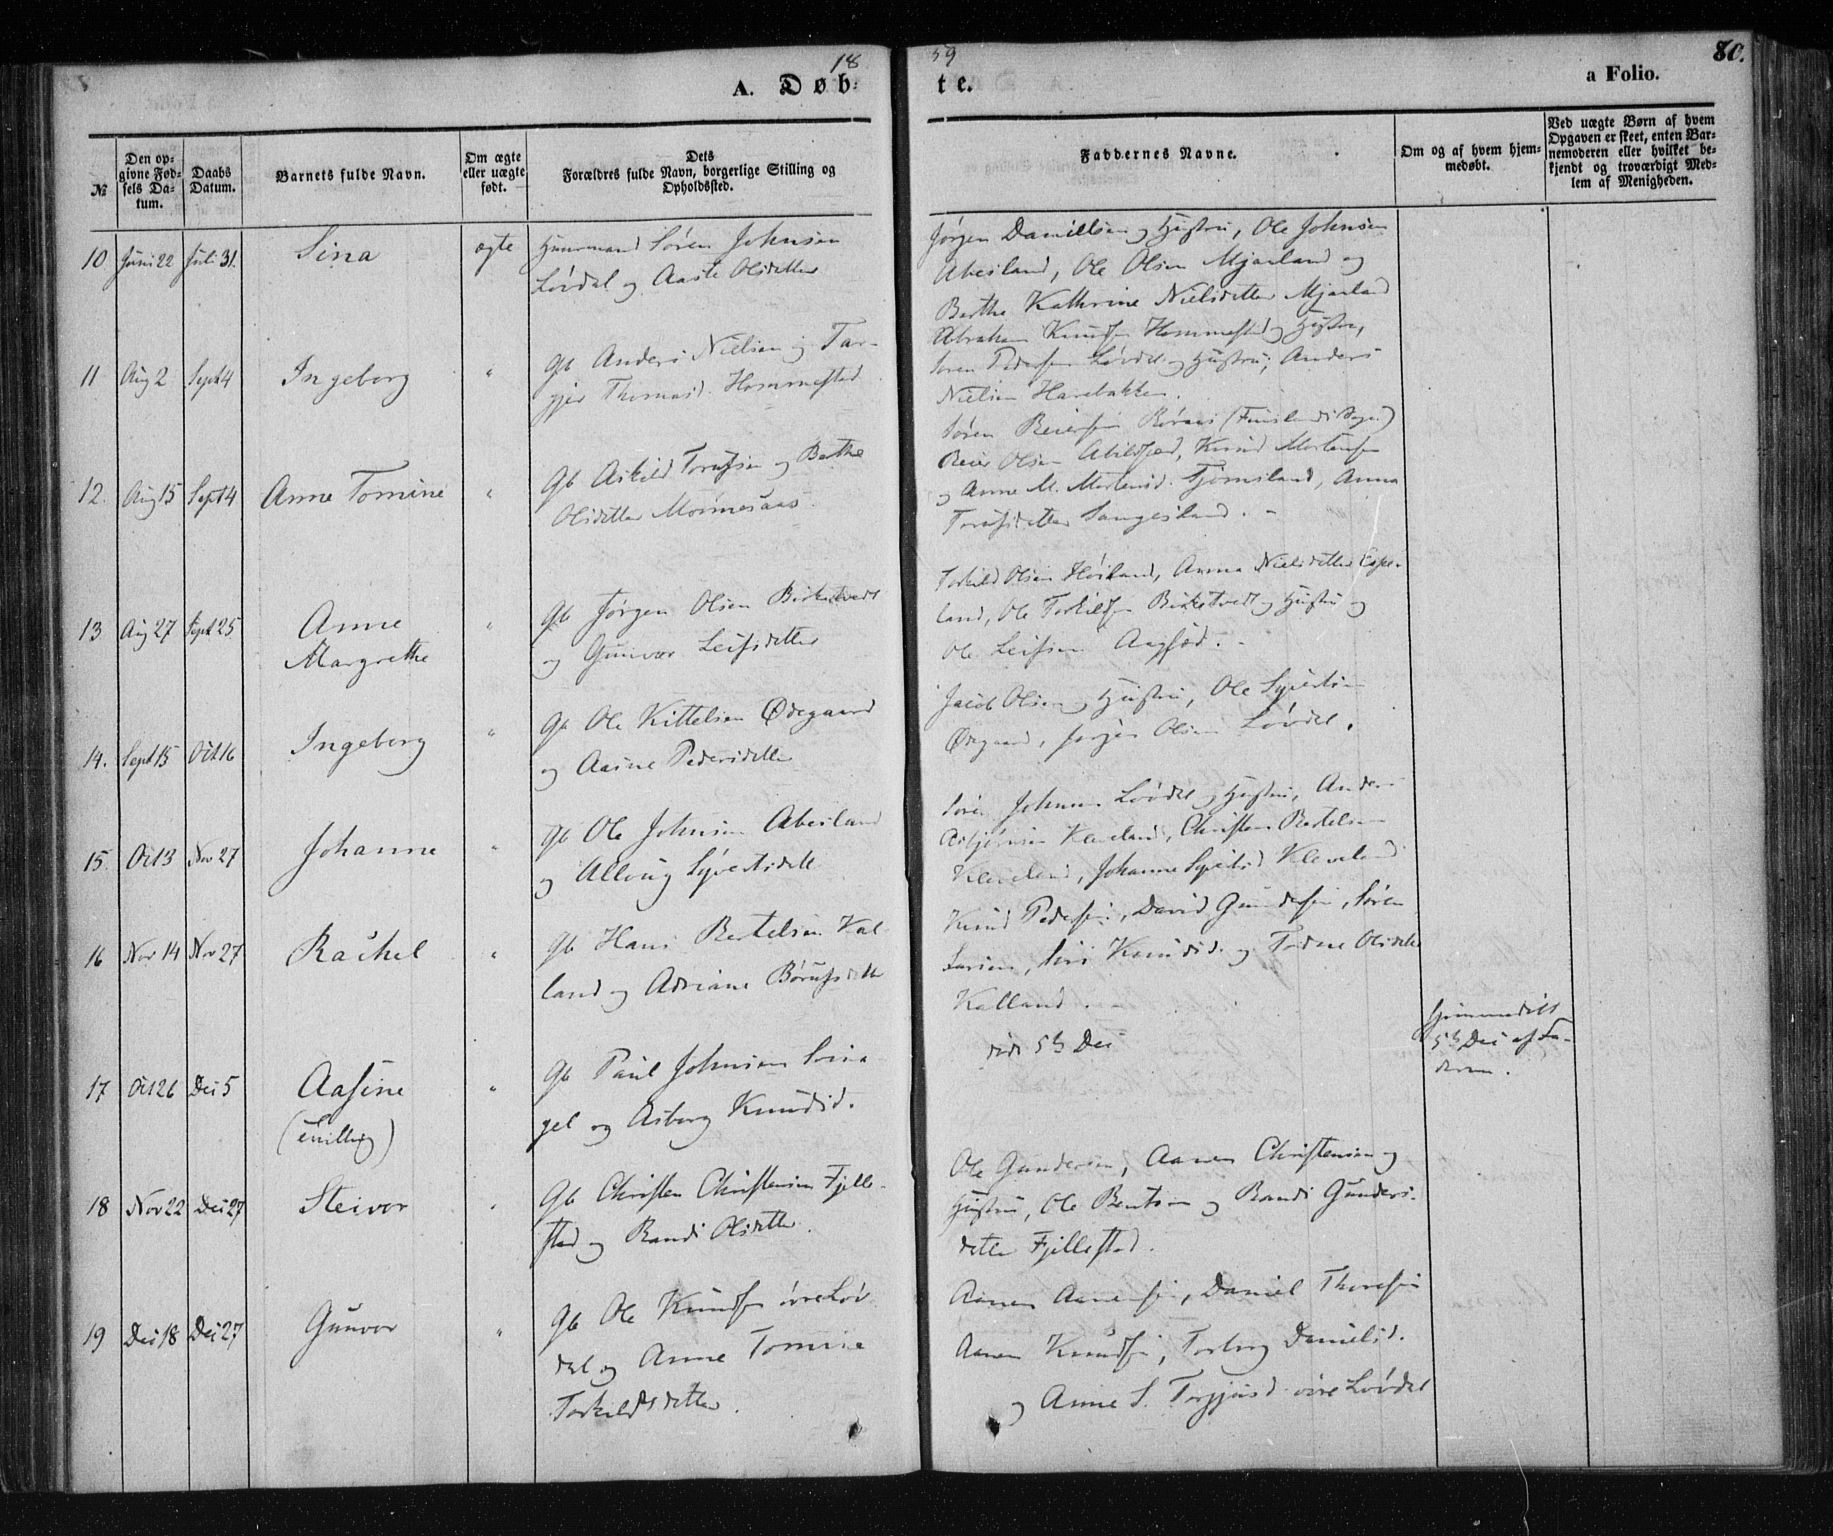 18 59
80.
A. Døb:te.
a Folio.
№
Den opgivne Fødsels Datum.
Daabs Datum.
Barnets fulde Navn.
Om ægte eller uægte født.
Dets Forældres fulde Navn, borgerlige Stilling og Opholdssted.
Faddernes Navne.
Om og af hvem hjemmedøbt.
Ved uægte Børn af hvem Opgaven er skeet, enten Barnemoderen eller hvilket bekjendt og troværdigt Medlem af Menigheden.
10 Juni 22 Juli 31. Sina ægte Huusmand Sören Johnsen
Lövdal og Aaste Olsdatter
Jörgen Daniellsen og Hustru, Ole Johnsen
Abesland, Ole Olsen Mjaaland og
Berthe Kathrine Nielsdatter Mjaaland
11 Aug 2 Sept 4 Ingeborg " Gb Anders Nielsen og Tar-
gjer Thomasd. Hommestad
Abraham Knudsen Hommestad og Hustru,
Sören Pedersen Lövdal og Hustru, Anders
Nielsen Harebakken.
12. Aug 15 Sept 4 Anne Tomine " Gb Askild Torufsen og Berthe
Olsdatter
Sören Reiersen Röraas (Finslands Sogn)
Reier Olsen Abildsød, Knud Mortensen
og Anne M. Mortensd. Fjomsland, Anna
Torufsdatter Sangesland. -
13 Aug 27 Sept 25 Anne
Margrethe " Gb Jörgen Olsen Birketvedt
og Gunvor Leifsdatter
Torkild Olsen Höiland, Anna Nielsdatter Espe-
land, Ole Torkildsen Birketvedt og Hustru og
Ole Leifsen. -
14. Sept 15 Oct 16 Ingeborg " Gb Ole Kittelsen Ødegaard
og Aasne Pedersdatter
Jacob Olsen og Hustru, Ole Syvertsen
Ødegaard, Olsen Lövdal.
15. Oct 3 Nov 27 Johanne " Gb Ole Johnsen Abesland
og Allaug Syvertsdatt
Sören Johnsen Lövdal og Hustru, Anders
Asbjörnsen Kleveland, Christen Bertelsen
Kleveland, Johanne Syvertsd Kleveland
16 Nov 14 Nov 27 Rachel " Gb Hans Bertelsen Kal-
land og Adriane Börufsdatte
Knud Pedersen, David Gundersen, Sören
Larsen, Siri Knudsd. og Todne Olsdatter
Kalland. -
17 Oct 26 Dec 5 Aasine
(Tvilling) " Gb Paul Johnsen
og Asborg Knudsd.
död 5te Dec
Hjemmedöbt
5te Dec af Fa-
deren.
18 Nov 22 Dec 27 Steivor " Gb Christen Christensen Fjelle-
stad og Randi Olsdatter.
Ole Gundersen, Aanen Christensen og
Hustru, Ole Bentsen og Randi Gunders-
datter Fjellestad.
19 Dec 18 Dec 27 Gunvor " Gb Ole Knudsen övre Löv-
dal og Anne Tomine
Torkildsdatter.
Aanen Aanensen, Daniel Thoresen
Aanen Knudsen, Torborg Danielsd.
og Anne S. Torgjusd. övre Lövdal